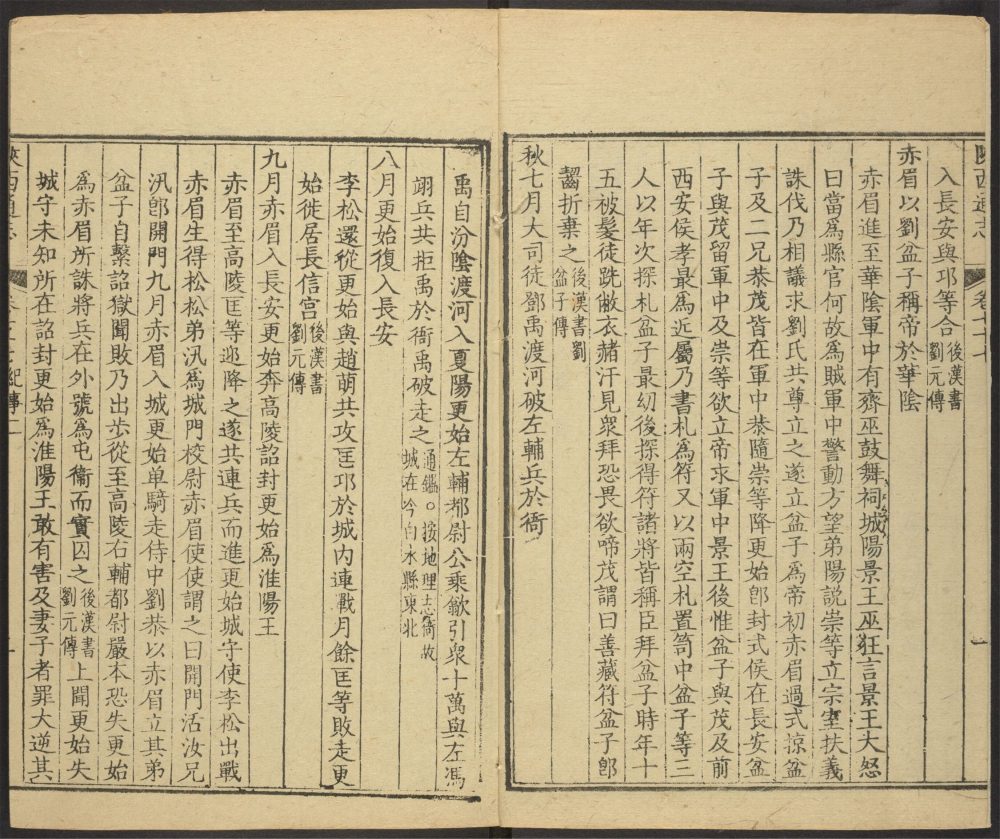 陝西通志
卷七十七
入長安與邛等合後漢書劉元傳
赤眉以劉盆子稱帝於華陰
赤眉進至華陰軍中有齊巫鼓舞祠城陽景王巫狂言景王大怒
曰當為縣官何故為賊軍中警動方望弟陽說崇等立宗室扶義
誅伐乃相議求劉氏共尊立之遂立盆子為帝初赤眉過式掠盆
子及二兄恭茂皆在軍中恭隨崇等降更始卽封式侯在長安盆
子與茂留軍中及崇等欲立帝求軍中景王後惟盆子與茂及前
西安侯孝最為近屬乃書札為符又以兩空札置笥中盆子等三
人以年次探札盆子最幼後探得符諸將皆稱臣拜盆子時年十
五被髮徒跣敝衣赭汗見衆拜恐畏欲啼茂謂曰善藏符盆子卽
齧折棄之後漢書劉盆子傳
秋七月大司徒鄧禹渡河破左輔兵於衙
禹自汾陰渡河入夏陽更始左輔都尉公乘歙引衆十萬與左馮
翊兵共拒禹於衙禹破走之通鑑○按地理志衙故城在今白水縣東北
八月更始復入長安
李松還從更始與趙萌共攻匡邛於城內連戰月餘匡等敗走更
始徙居長信宮後漢書劉元傳
九月赤眉入長安更始奔高陵詔封更始為淮陽王
赤眉至高陵匡等迎降之遂共連兵而進更始城守使李松出戰
赤眉生得松松弟汎為城門校尉赤眉使使謂之曰開門活汝兄
汎卽開門九月赤眉入城更始单騎走侍中劉恭以赤眉立其弟
盆子自繫詔獄聞敗乃出步從至高陵右輔都尉嚴本恐失更始
為赤眉所誅將兵在外號為屯衞而實囚之後漢書劉元傳上聞更始失
城守未知所在詔封更始為淮陽王敢有害及妻子者罪大逆其
陝西通志
紀事二